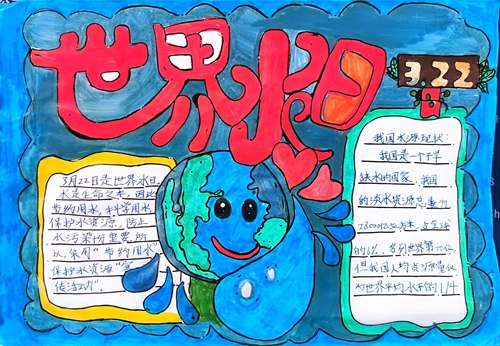 世界水日
3.22
3月22日是世界水日
水是生命之本,因此
节约用水,科学用水
保护水资源,防止
水污染很重要,所
以,采用"节约用水"
保护水资源"宣
传活动"。
我国水源现状:
我国是一个干旱
缺水的国家,我国
的淡水资源总量为
28000亿立方米,占全球
的6%,名列世界第六位
但我国人均资源量仅
为世界平均水平的1/4